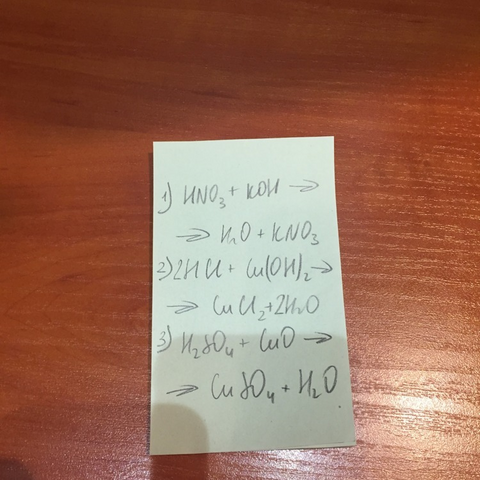 1) HNO₃ + KOH →
→ H₂O + KNO₃
2) 2HCl + Cu(OH)₂ →
→ CuCl₂ + 2H₂O
3) H₂SO₄ + CuO →
→ CuSO₄ + H₂O